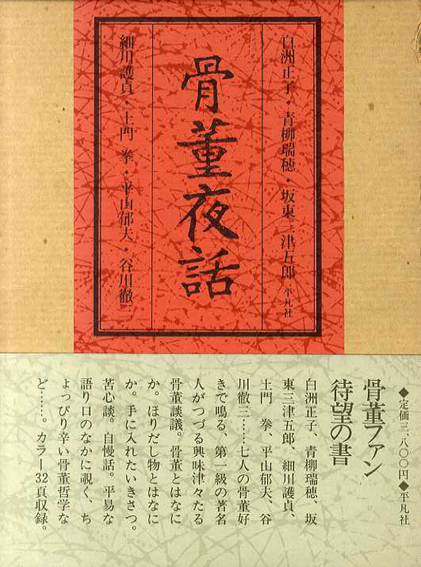 白洲正子・青柳瑞穂・坂東三津五郎 平凡社
骨董夜話
細川護貞・土門 拳・平山郁夫・谷川徹三
◆定価三、八〇〇円◆平凡社
骨董ファン
待望の書
白洲正子、青柳瑞穂、坂
東三津五郎 細川護貞、
土門 拳、平山郁夫、谷
川徹三……七人の骨董好
きで鳴る、第一級の著名
人がつづる興味津々たる
骨董談議。骨董とはなに
か。ほりだし物とはなに
か。手に入れたいきさつ。
苦心談。自慢話。平易な
語り口のなかに覗く、ち
ょっぴり辛い骨董哲学な
ど……。カラー32頁収録。